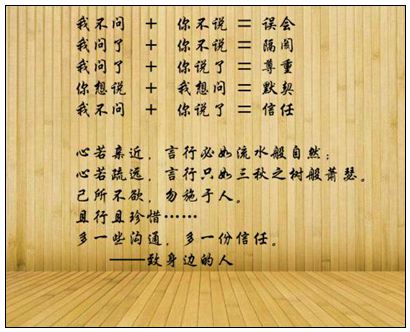 我不问 + 你不说 = 误会
我问了 + 你不说 = 隔阂
我问了 + 你说了 = 尊重
你想说 + 我想问 = 默契
我不问 + 你说了 = 信任
心若亲近，言行必如流水般自然；
心若疏远，言行只如三秋之树般萧瑟。
己所不欲，勿施于人。
且行且珍惜……
多一些沟通，多一份信任。
——致身边的人